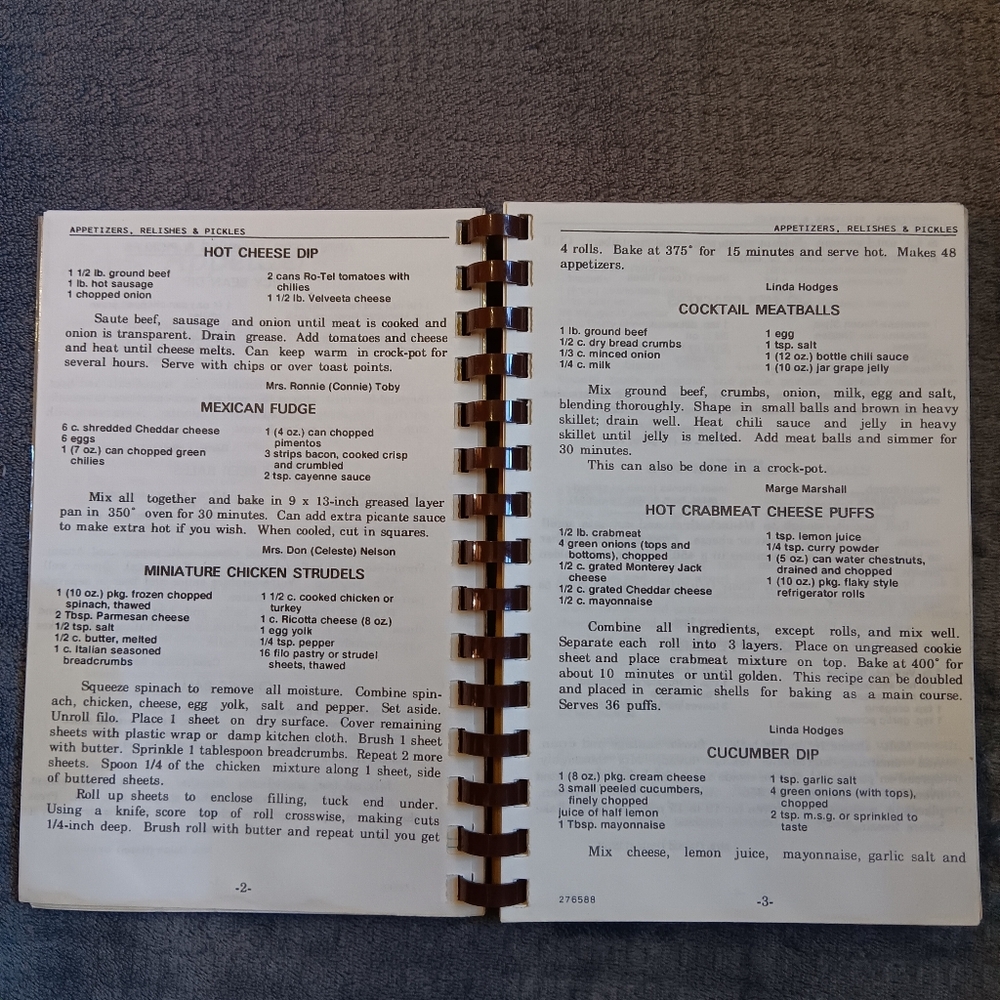 APPETIZERS, RELISHES & PICKLES
HOT CHEESE DIP
1 1/2 lb. ground beef
1 lb. hot sausage
1 chopped onion
2 cans Ro-Tel tomatoes with
chilies
1 1/2 lb. Velveeta cheese
Saute beef, sausage and onion until meat is cooked and
onion is transparent. Drain grease. Add tomatoes and cheese
and heat until cheese melts. Can keep warm in crock-pot for
several hours. Serve with chips or over toast points.
Mrs. Ronnie (Connie) Toby
MEXICAN FUDGE
6 c. shredded Cheddar cheese
6 eggs
1 (7 oz.) can chopped green
chilies
1 (4 oz.) can chopped
pimentos
3 strips bacon, cooked crisp
and crumbled
2 tsp. cayenne sauce
Mix all together and bake in 9 x 13-inch greased layer
pan in 350° oven for 30 minutes. Can add extra picante sauce
to make extra hot if you wish. When cooled, cut in squares.
Mrs. Don (Celeste) Nelson
MINIATURE CHICKEN STRUDELS
1 (10 oz.) pkg. frozen chopped
spinach, thawed
2 Tbsp. Parmesan cheese
1/2 tsp. salt
1/2 c. butter, melted
1 c. Italian seasoned
breadcrumbs
1 1/2 c. cooked chicken or
turkey
1 c. Ricotta cheese (8 oz.)
1 egg yolk
1/4 tsp. pepper
16 filo pastry or strudel
sheets, thawed
Squeeze spinach to remove all moisture. Combine spin-
ach, chicken, cheese, egg yolk, salt and pepper. Set aside.
Unroll filo. Place 1 sheet on dry surface. Cover remaining
sheets with plastic wrap or damp kitchen cloth. Brush 1 sheet
with butter. Sprinkle 1 tablespoon breadcrumbs. Repeat 2 more
sheets. Spoon 1/4 of the chicken mixture along 1 sheet, side
of buttered sheets.
Roll up sheets to enclose filling, tuck end under.
Using a knife, score top of roll crosswise, making cuts
1/4-inch deep. Brush roll with butter and repeat until you get
-2-
APPETIZERS, RELISHES & PICKLES
4 rolls. Bake at 375° for 15 minutes and serve hot. Makes 48
appetizers.
Linda Hodges
COCKTAIL MEATBALLS
1 lb. ground beef
1/2 c. dry bread crumbs
1/3 c. minced onion
1/4 c. milk
1 egg
1 tsp. salt
1 (12 oz.) bottle chili sauce
1 (10 oz.) jar grape jelly
Mix ground beef, crumbs, onion, milk, egg and salt,
blending thoroughly. Shape in small balls and brown in heavy
skillet; drain well. Heat chili sauce and jelly in heavy
skillet until jelly is melted. Add meat balls and simmer for
30 minutes.
This can also be done in a crock-pot.
Marge Marshall
HOT CRABMEAT CHEESE PUFFS
1/2 lb. crabmeat
4 green onions (tops and
bottoms), chopped
1/2 c. grated Monterey Jack
cheese
1/2 c. grated Cheddar cheese
1/2 c. mayonnaise
1 tsp. lemon juice
1/4 tsp. curry powder
1 (5 oz.) can water chestnuts,
drained and chopped
1 (10 oz.) pkg. flaky style
refrigerator rolls
Combine all ingredients, except rolls, and mix well.
Separate each roll into 3 layers. Place on ungreased cookie
sheet and place crabmeat mixture on top. Bake at 400° for
about 10 minutes or until golden. This recipe can be doubled
and placed in ceramic shells for baking as a main course.
Serves 36 puffs.
Linda Hodges
CUCUMBER DIP
1 (8 oz.) pkg. cream cheese
3 small peeled cucumbers,
finely chopped
juice of half lemon
1 Tbsp. mayonnaise
1 tsp. garlic salt
4 green onions (with tops),
chopped
2 tsp. m.s.g. or sprinkled to
taste
Mix cheese, lemon juice, mayonnaise, garlic salt and
276588
-3-